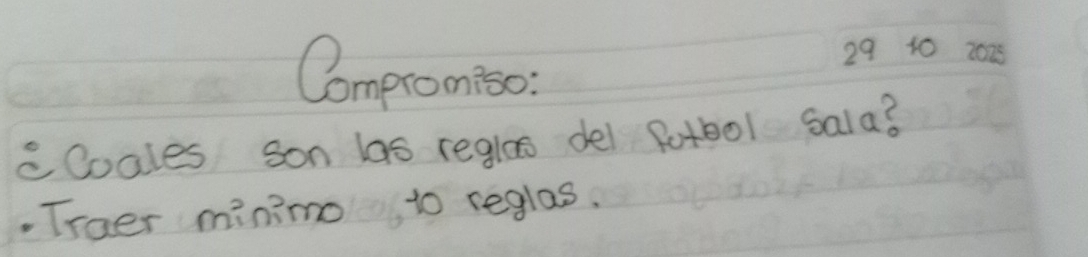 29 10 2025
Compromiso:
¿Cuales son las reglas del futbol sala?
·Traer minimo 10 reglas.